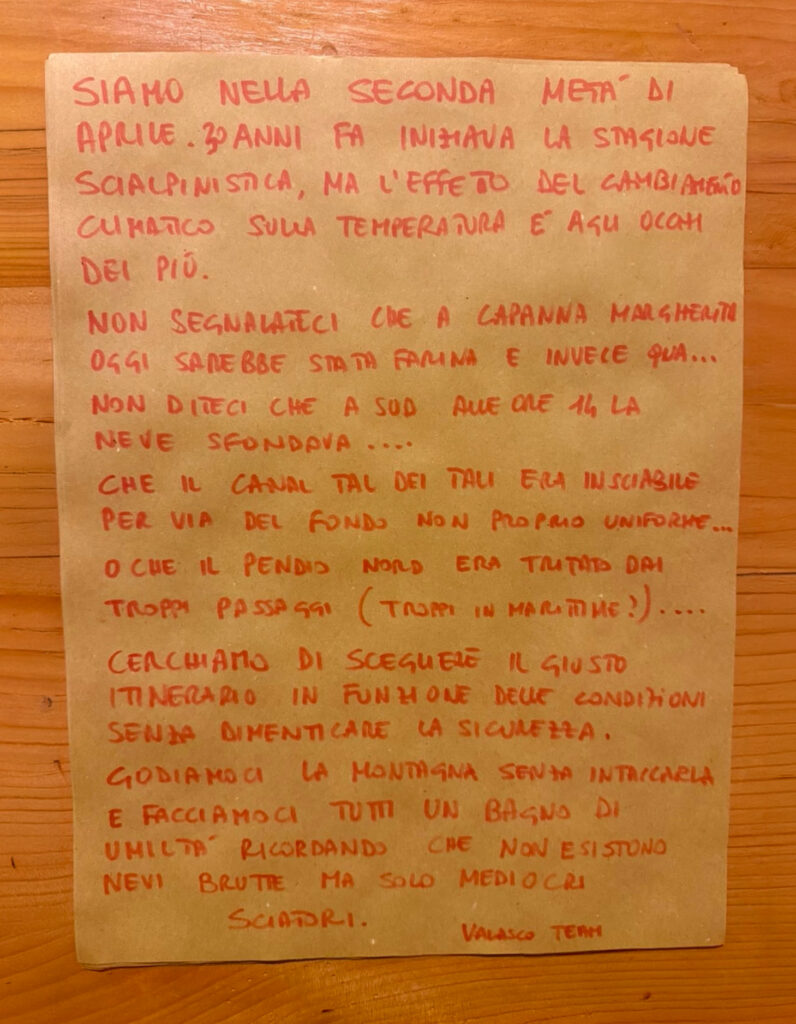 SIAMO NELLA SECONDA METÀ DI
APRILE. 30 ANNI FA INIZIAVA LA STAGIONE
SCIALPINISTICA, MA L'EFFETTO DEL CAMBIAMENTO
CLIMATICO SULLA TEMPERATURA È AGLI OCCHI
DEI PIÙ.
NON SEGNALATECI CHE A CAPANNA MARGHERITA
OGGI SAREBBE STATA FARINA E INVECE QUA...
NON DITECI CHE A SUD ALLE ORE 14 LA
NEVE SFONDAVA ....
CHE IL CANAL TAL DEI TALI ERA INSCIABILE
PER VIA DEL FONDO NON PROPRIO UNIFORME...
O CHE IL PENDIO NORD ERA TRITATO DAI
TROPPI PASSAGGI (TROPPI IN MARITTIME?)....
CERCHIAMO DI SCEGLIERE IL GIUSTO
ITINERARIO IN FUNZIONE DELLE CONDIZIONI
SENZA DIMENTICARE LA SICUREZZA.
GODIAMOCI LA MONTAGNA SENZA INTACCARLA
E FACCIAMOCI TUTTI UN BAGNO DI
UMILTÀ RICORDANDO CHE NON ESISTONO
NEVI BRUTTE MA SOLO MEDIOCRI
SCIATORI.
VALASCO TEAM